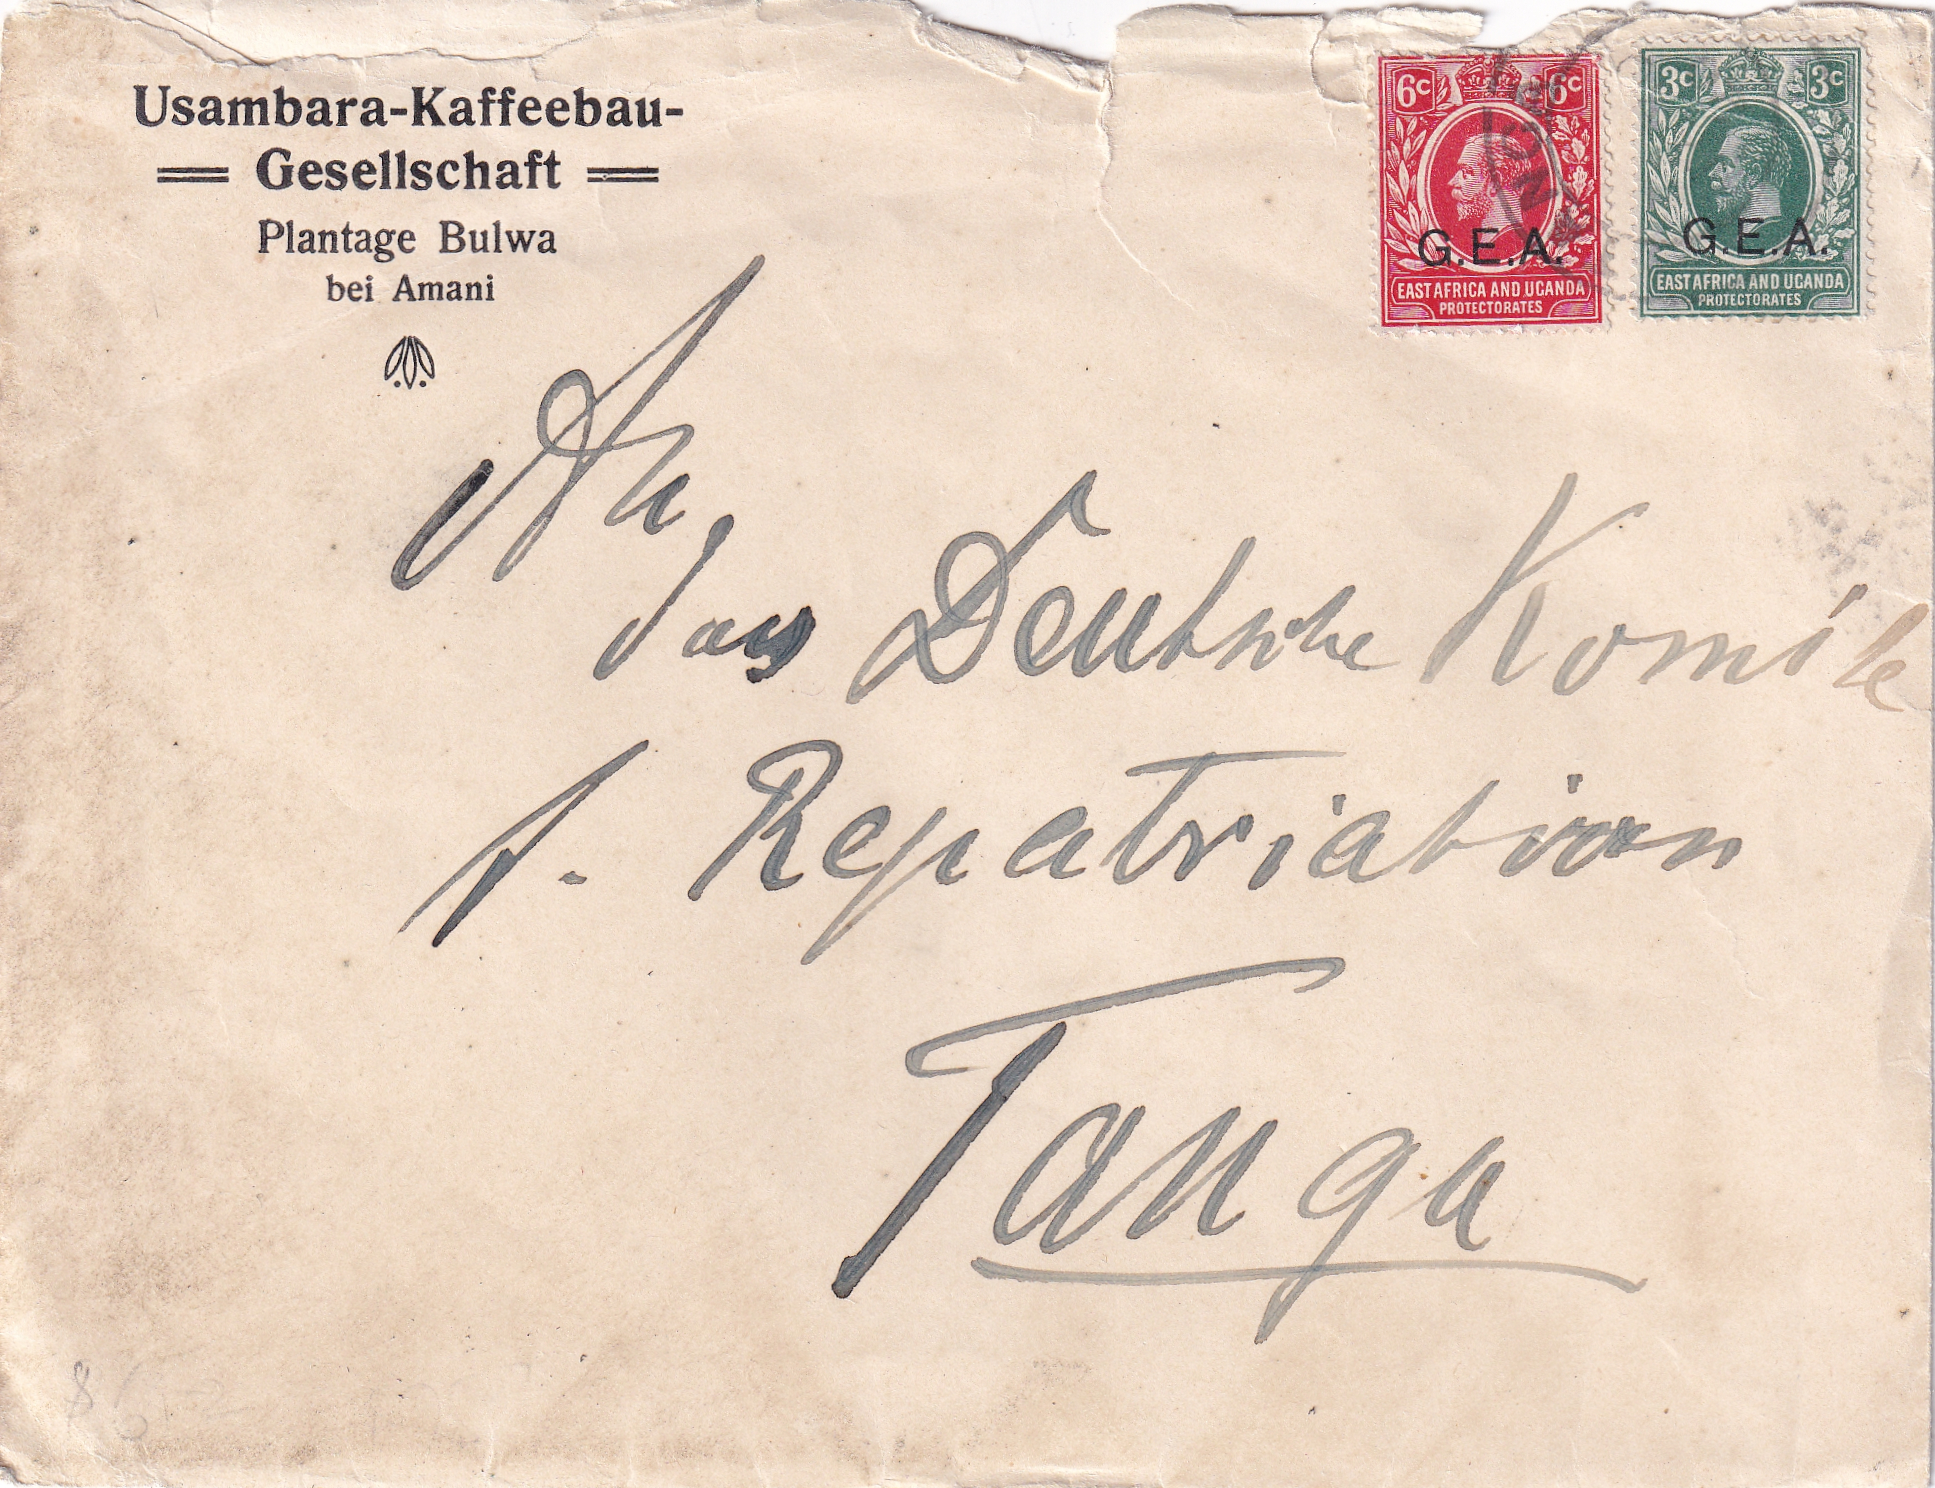 Usambara-Kaffeebau-
Gesellschaft
Plantage Bulwa
bei Amani
6c 6c
G.E.A.
EAST AFRICA AND UGANDA
PROTECTORATES
3c 3c
G.E.A.
EAST AFRICA AND UGANDA
PROTECTORATES
An
das Deutsche Komite
f. Repatriation
Tanga